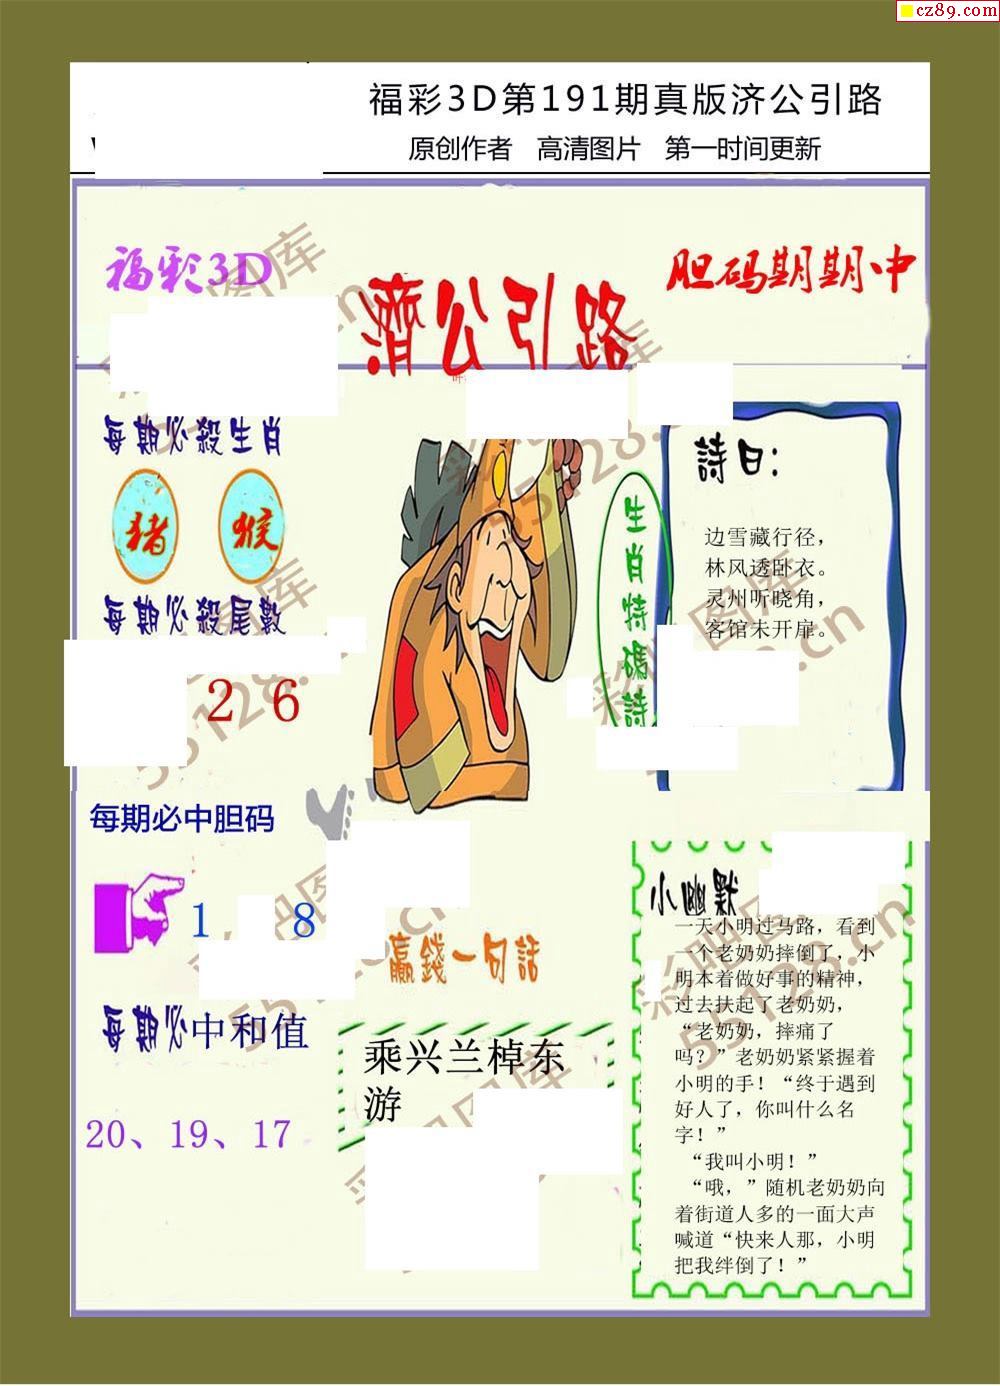 cz89.com
福彩3D第191期真版济公引路
原创作者 高清图片 第一时间更新
福彩3D
濟公引路
胆码期期中
每期必殺生肖
猪 猴
每期必殺尾數
2 6
每期必中胆码
1 8
每期必中和值
20、19、17
生肖特碼詩
詩曰：
边雪藏行径，
林风透卧衣。
灵州听晓角，
客馆未开扉。
赢錢一句話
乘兴兰棹东
游
小幽默
一天小明过马路，看到
一个老奶奶摔倒了，小
明本着做好事的精神，
过去扶起了老奶奶，
“老奶奶，摔痛了
吗？”老奶奶紧紧握着
小明的手！“终于遇到
好人了，你叫什么名
字！”
“我叫小明！”
“哦，”随机老奶奶向
着街道人多的一面大声
喊道“快来人那，小明
把我绊倒了！”
彩吧图库
55128.cn